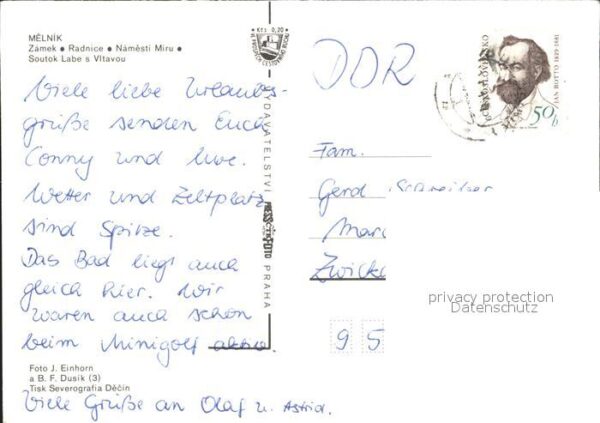 MĚLNÍK
Zámek • Radnice • Náměstí Míru •
Soutok Labe s Vltavou
Kčs 0,20
Viele liebe Urlaubs-
grüße senden Euch
Conny und Uwe.
Wetter und Zeltplatz
sind Spitze.
Das Bad liegt auch
gleich hier. Wir
waren auch schon
beim Minigolf aktiv.
Foto J. Einhorn
a B. F. Dusík (3)
Tisk Severografia Děčín
Viele Grüße an Olaf u. Astrid.
VYDAVATELSTVÍ PRESSFOTO PRAHA
DDR
ČESKOSLOVENSKO
JÁN BOTTO 1829-1881
50 h
Fam.
Gerd
Zwick
95
privacy protection
Datenschutz